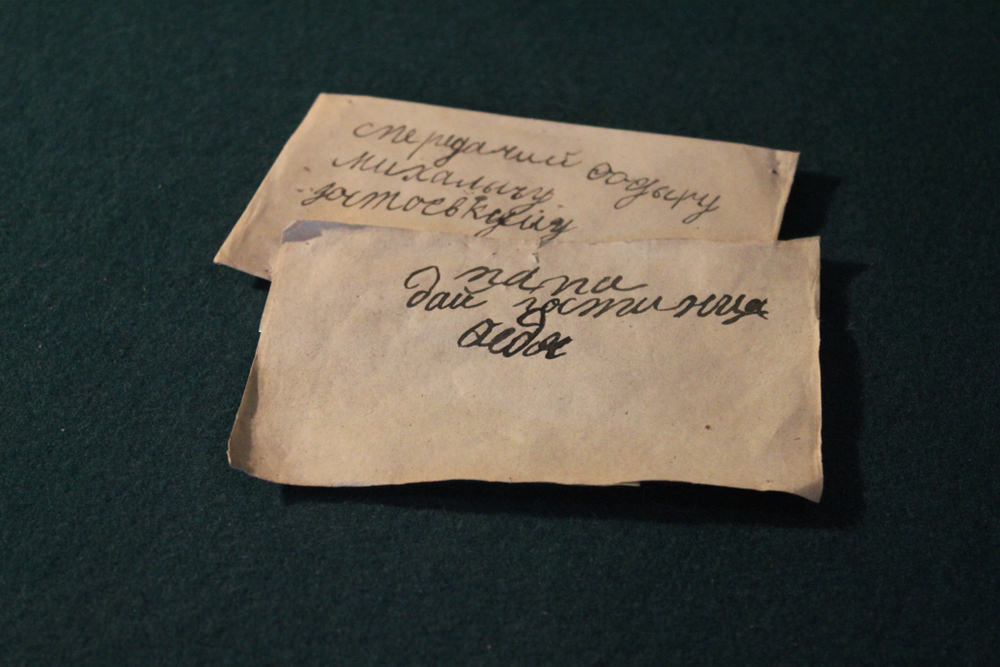 спередачий ѳодыру
михалычу
достоевкуму
папа
дай гостинца
ѳедя